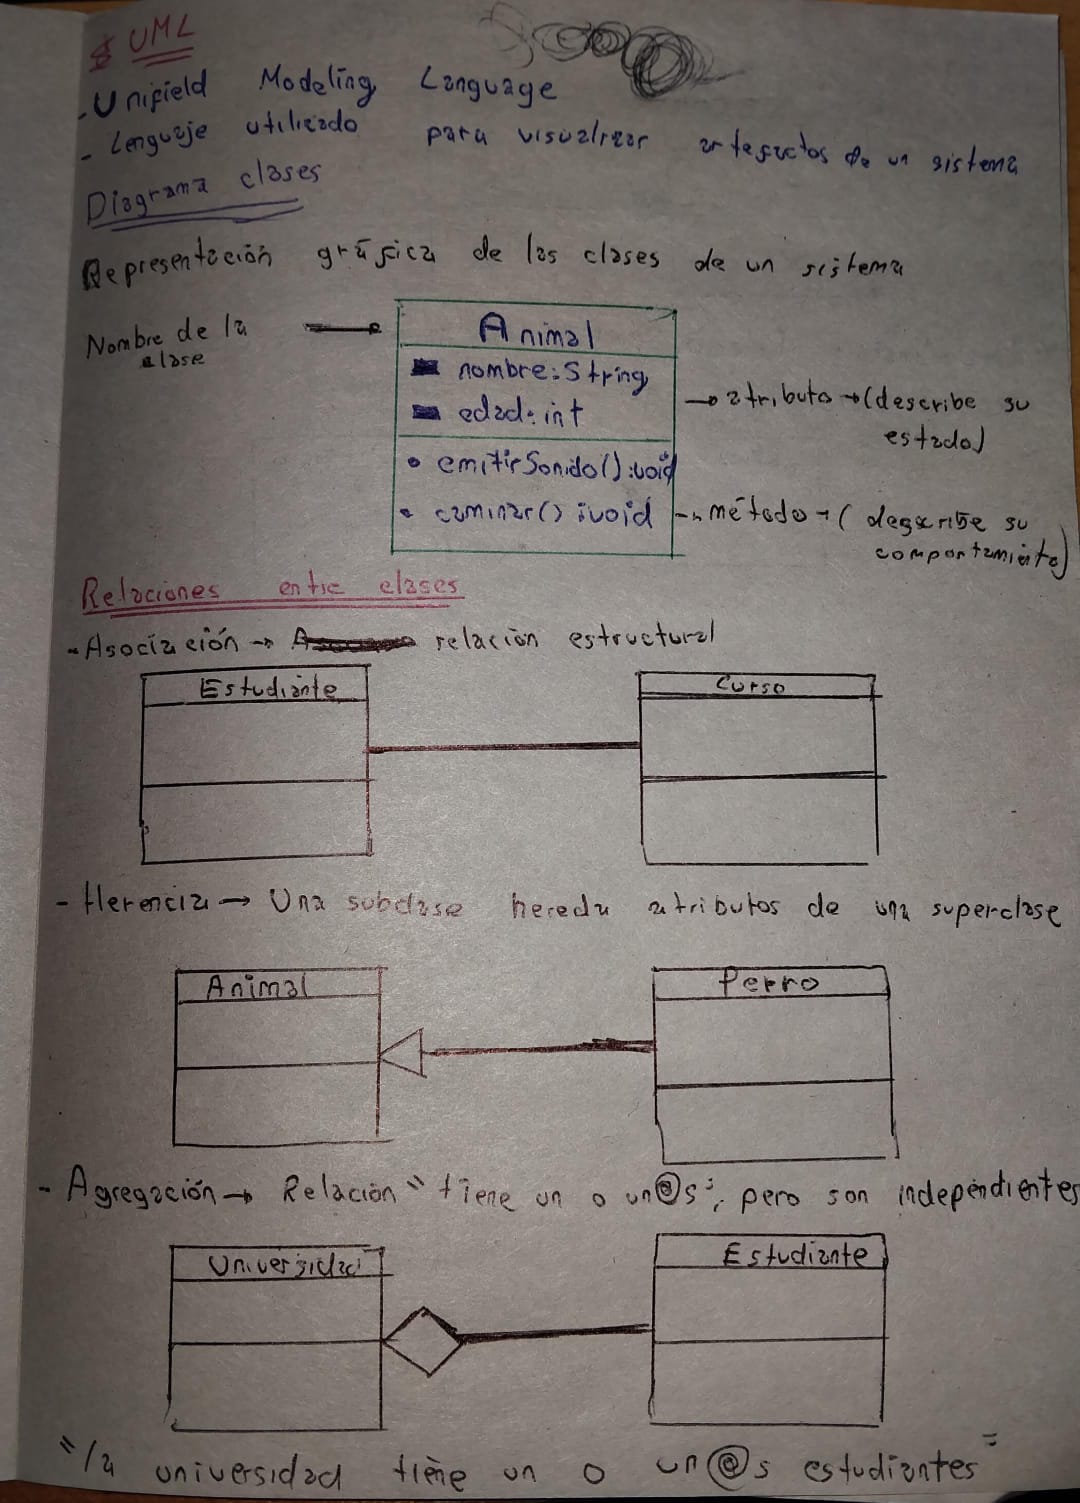 UML
- Unifield Modeling Language
- Lenguaje utilizado para visualizar artefactos de un sistema
Diagrama clases
Representación gráfica de las clases de un sistema
Nombre de la clase →
Animal
nombre: String
edad: int
→ atributo → (describe su estado)
• emitirSonido(): void
• caminar(): void
→ método → (describe su comportamiento)
Relaciones entre clases
- Asociación → relación estructural
Estudiante
Curso
- Herencia → Una subclase hereda atributos de una superclase
Animal
Perro
- Agregación → Relación "tiene un o un@s", pero son independientes
Universidad
Estudiante
"la universidad tiene un o un@s estudiantes"